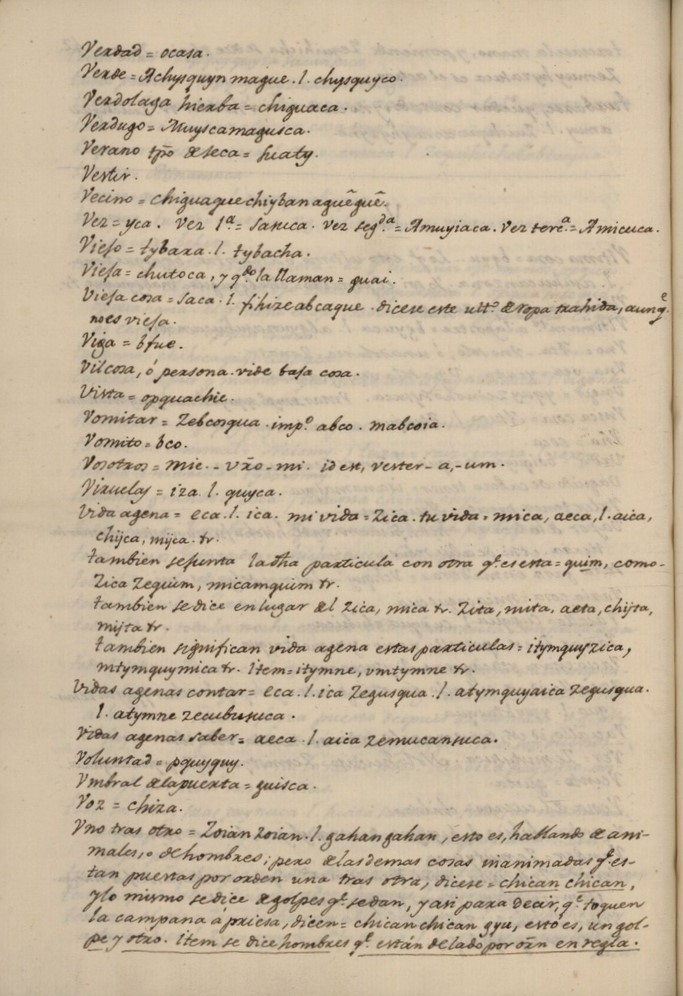 Verdad = ocasa.
Verde = Achysquyn mague. l. chysquyco.
Verdolaga hierba = chiguaca.
Verdugo = Muyscamagusca.
Verano tpo de seca = suaty.
Vestir.
Vecino = chiguaquechiyban aguêguê.
Vez = yca. Vez 1.ª = sasuca. vez seg.da = Amuyiaca. Vez terc.ª = Amicuca.
Viejo = tybara. l. tybacha.
Vieja = chutoca, y q.do la llaman = guai.
Vieja cosa = saca. l. fihizeabcaque. dicese este ult.o de ropa trahida, aunq.e
no es vieja.
Viga = bfue.
Vil cosa, ó persona. vide baja cosa.
Vista = opquachie.
Vomitar = Zebcosqua. imp.o abco. mabcoia.
Vomito = bco.
Vosotros = mie. - vr̃o - mi. id est, vester - a, - um.
Viruelas = iza. l. quyca.
Vida agena = eca. l. ica. mi vida = Zica. tu vida = mica, aeca, l. aica,
chijca, mijca. tr.
tambien se junta la dha particula con otra q.e es esta = quim, como -
Zica zequim, micamquim tr.
tambien se dice en lugar del Zica, mica tr. Zita, mita, aeta, chijta,
mijta tr.
tambien significan vida agena estas particulas = itymquyzica,
mtymquymica tr. Item = itymne, vmtymne tr.
Vidas agenas contar = eca. l. ica zegusqua. l. atymquyaica zegusqua.
l. atymne zecubunsuca.
Vidas agenas saber = aeca. l. aica zemucansuca.
Voluntad = pquyquy.
Vmbral de la puerta = guisca.
Voz = chiza.
Vno tras otro = Zoian zoian. l. gahan gahan, esto es, hablando de ani-
males, o de hombres; pero de las demas cosas inanimadas q.e es-
tan puestas por orden una tras otra, dicese = chican chican,
y lo mismo se dice de golpes q.e se dan, y asi para decir, q.e toquen
la campana a priesa, dicen = chican chican gyu, estó es, un gol-
pe y otro. Item se dice hombres q.e están de lado por orñ en regla.